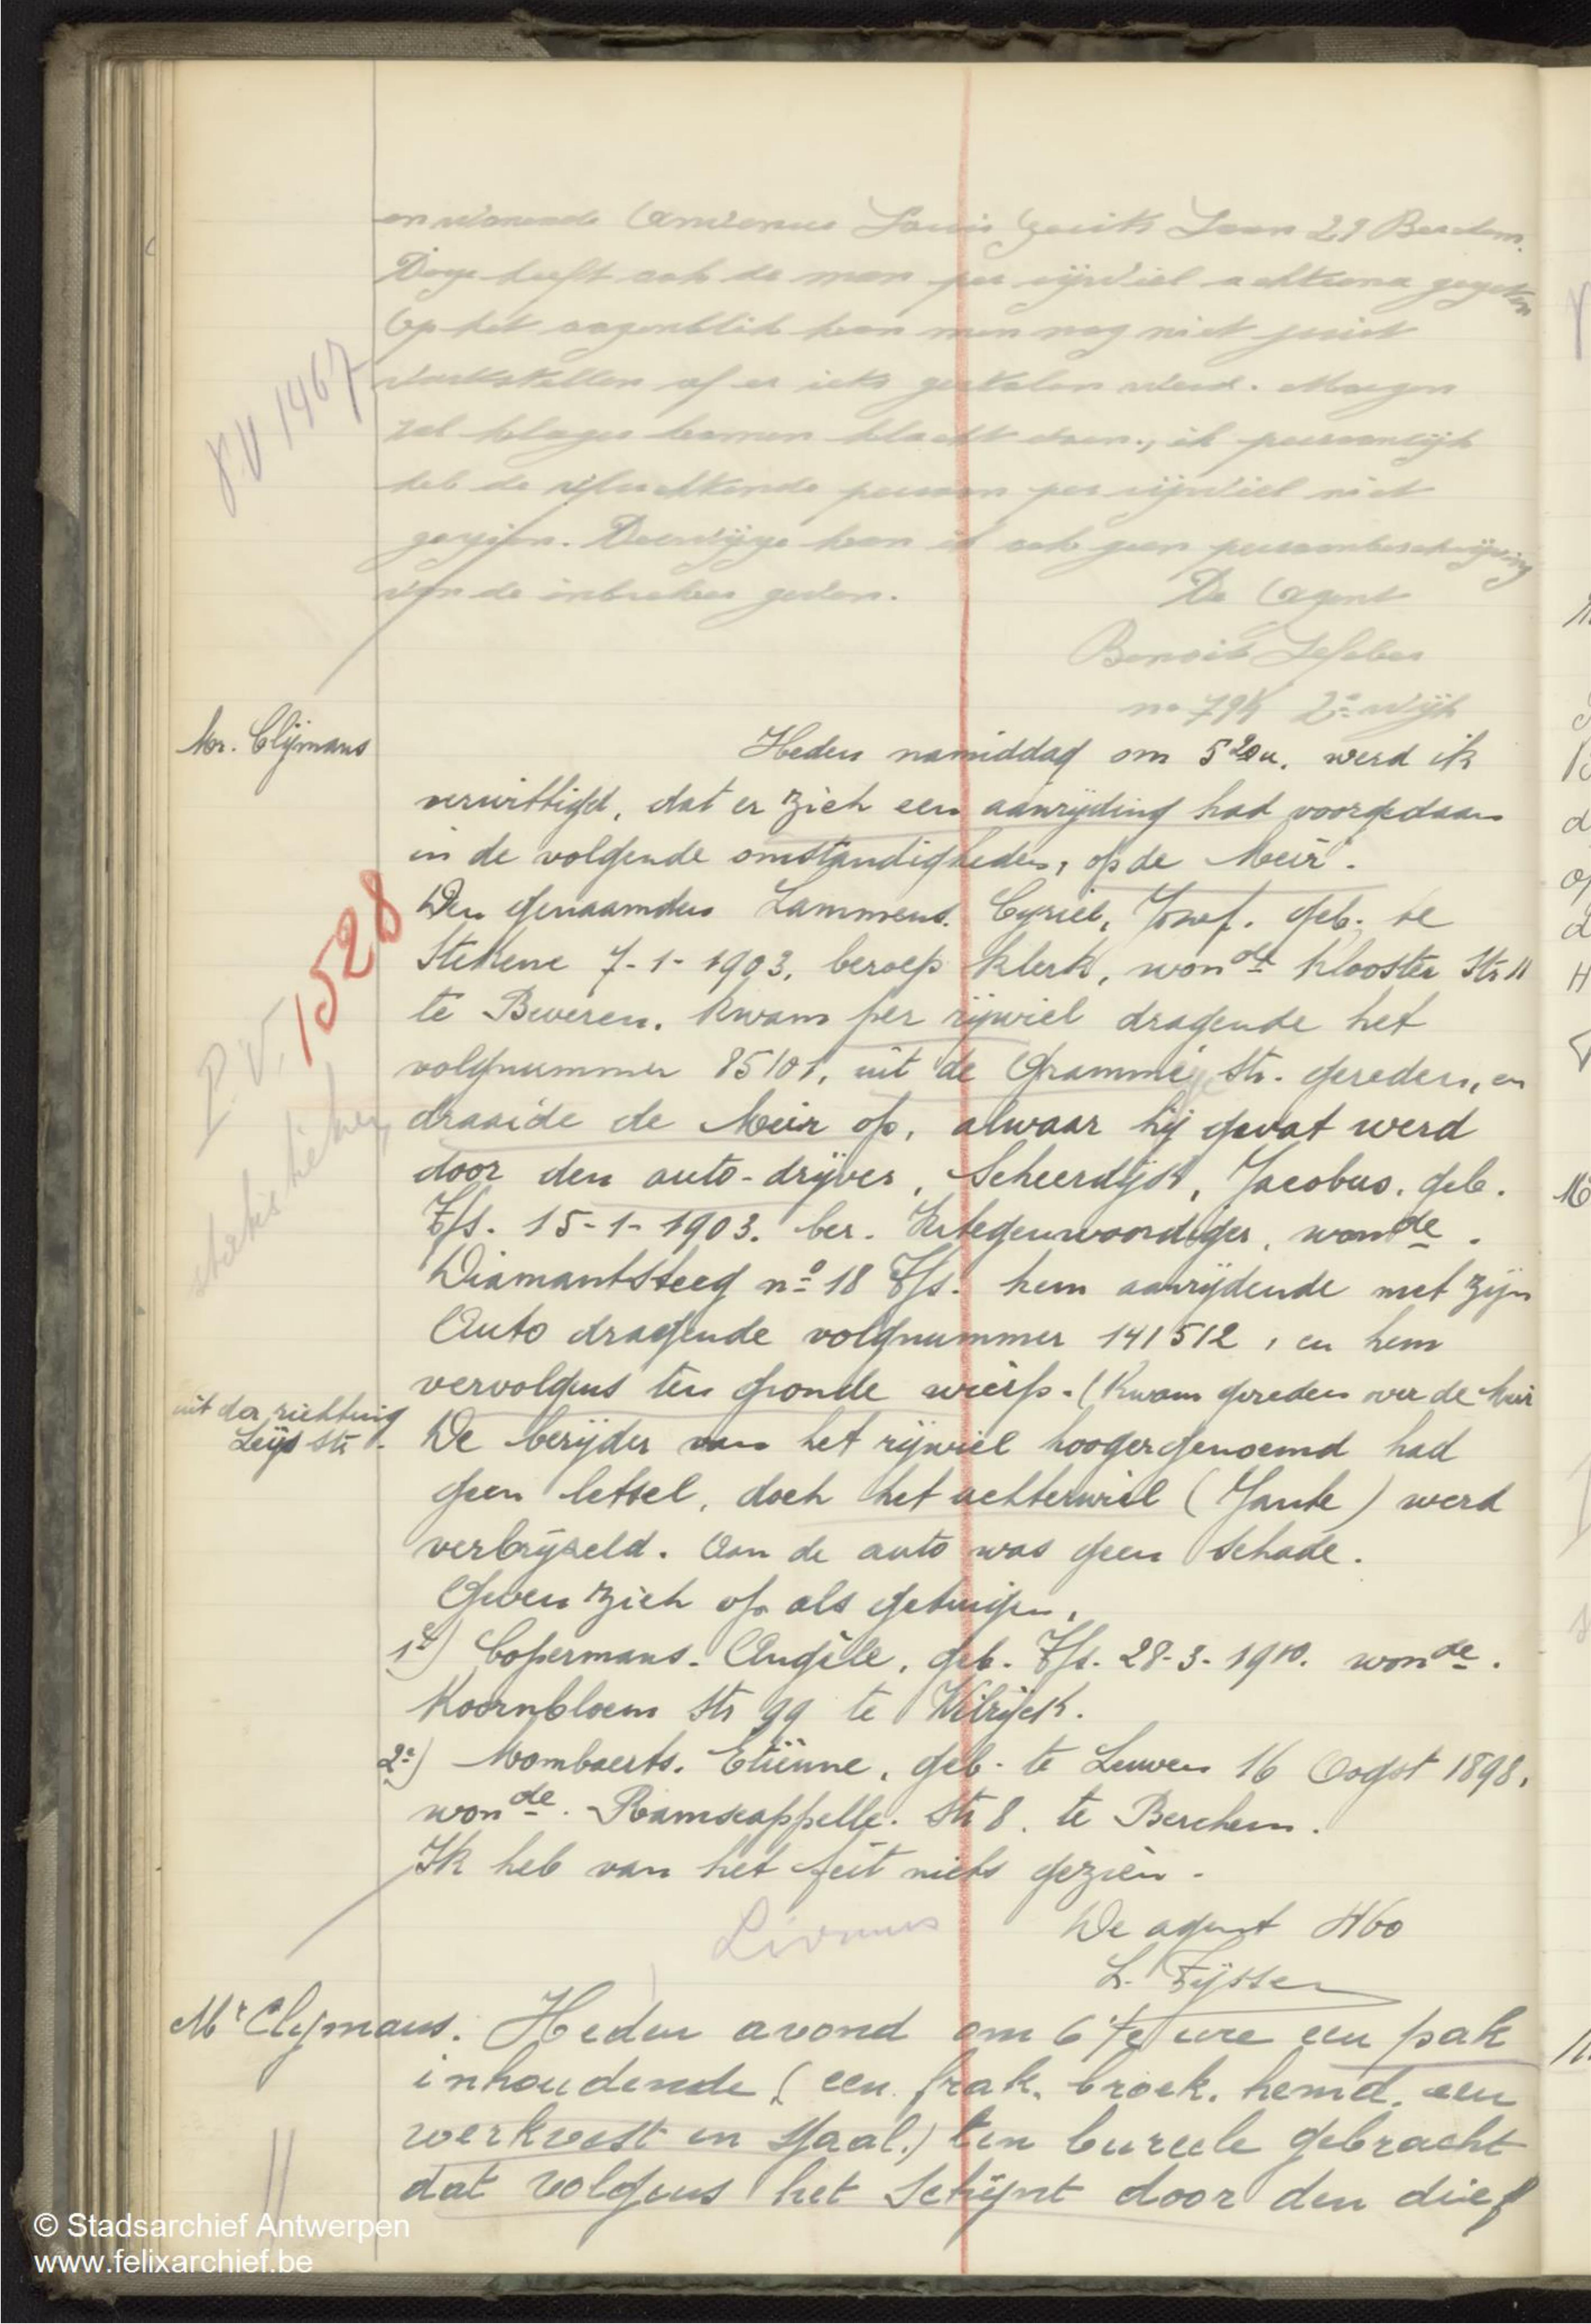 en wonende Louis Gerits Laan 29 Berchem.
Deze heeft ook de man per rijwiel achterna gezeten
Op het oogenblik kan men nog niet juist
vaststellen of er iets gestolen werd. Morgen
zal klager komen klacht doen, ik persoonlijk
heb de vluchtende persoon per rijwiel niet
gezien. Deswege kan ik ook geen persoonbeschrijving
van de inbreker geven.
De Agent
Benoit Lefeber
no 794 2e wijk
PV 1467
Mr. Clijmans
Heden namiddag om 5 20 u. werd ik
verwittigd, dat er zich een aanrijding had voorgedaan
in de volgende omstandigheden, op de Meir.
Den genaamden Lammens. Cyriel, Josef. geb. te
Stekene 7-1-1903. beroep klerk, wonde Klooster Str 11
te Beveren. kwam per rijwiel dragende het
volgnummer 85101, uit de Gramme Str. gereden, en
draaide de Meir op, alwaar hij gevat werd
door den auto-drijver, Scheerdijk, Jacobus. geb.
T/s. 15-1-1903. ber. Vertegenwoordiger, wonde.
Diamantsteeg no 18 T/s. hem aanrijdende met zijn
Auto dragende volgnummer 141512, en hem
vervolgens ten gronde wierp. (Kwam gereden over de Meir
uit der richting
Leijs Str.
De berijder van het rijwiel hoogergenoemd had
geen letsel, doch het achterwiel (Jante) werd
verbrijzeld. Aan de auto was geen schade.
Geven zich op als getuigen,
1e) Copermans. Angèle, geb. T/s. 28-3-1910. wonde.
Koornbloem Str 99 te Wilrijck.
2e) Mombaerts. Etiënne, geb. te Leuven 16 Oogst 1898,
wonde. Ramscappelle. Str 8. te Berchem.
Ik heb van het feit niets gezien.
De agent H60
L. Tijssen
P.V. 1528
Mr Clijmans. Heden avond om 6 ure een pak
inhoudende (een frak, broek, hemd, een
werkvest en sjaal.) ten bureele gebracht
dat volgens het schijnt door den dief
© Stadsarchief Antwerpen
www.felixarchief.be